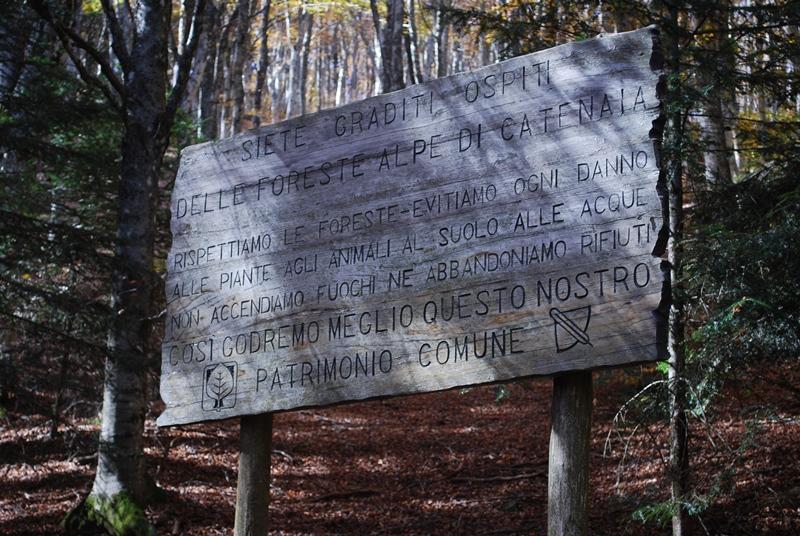 SIETE GRADITI OSPITI
DELLE FORESTE ALPE DI CATENAIA
RISPETTIAMO LE FORESTE-EVITIAMO OGNI DANNO
ALLE PIANTE AGLI ANIMALI AL SUOLO ALLE ACQUE
NON ACCENDIAMO FUOCHI NE ABBANDONIAMO RIFIUTI
COSI GODREMO MEGLIO QUESTO NOSTRO
PATRIMONIO COMUNE